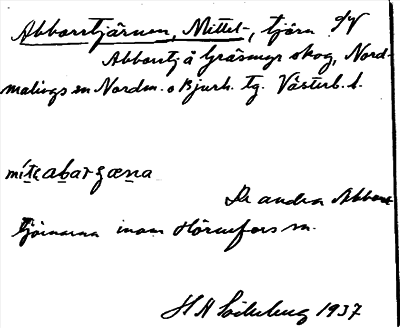 Abborrtjärnen, Mittel-, tjärn S/V
Abborrtj å Gräsmyr skog, Nord-
malings sn Nordm. o Bjurh. tg. Västerb. l.
De andra Abborr-
tjärnarna inom Hörnefors sn.
H A Söderberg 1937